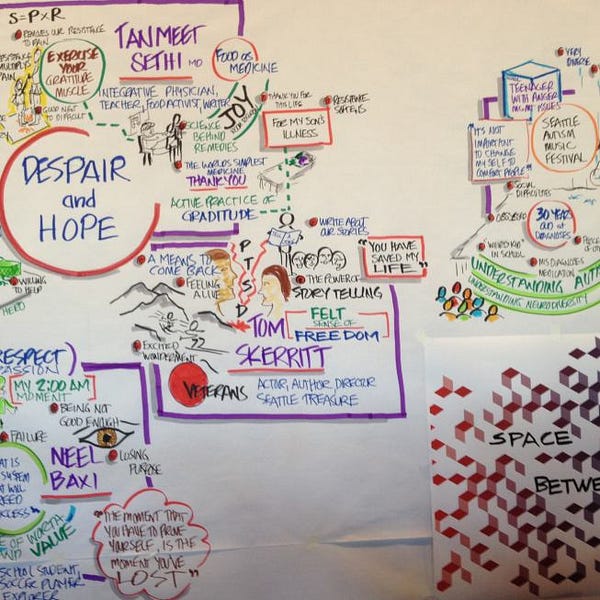 S=P×R
RESISTANCE
TO PAIN
EXERCISE
YOUR
GRATITUDE
MUSCLE
PAIN
GOOD
TO DIFFICULT
TANMEET
SETHI MD
FOOD AS
MEDICINE
INTEGRATIVE PHYSICIAN,
TEACHER, FOOD ACTIVIST, WRITER
JOY
THANK YOU FOR
THIS LIFE
RESISTANCE
FOR MY SON'S
ILLNESS
SCIENCE
BEHIND
REMEDIES
THE WORLD'S SIMPLEST
MEDICINE
THANK YOU
ACTIVE PRACTICE OF
GRATITUDE
DESPAIR
and
HOPE
WILLING
TO HELP
HERO
A MEANS TO
COME BACK
FEELING
ALIVE
PTSD
WRITE ABOUT
OUR STORIES
"YOU HAVE
SAVED MY
LIFE"
THE POWER OF
STORY TELLING
EXCITED
WONDERMENT
TOM
SKERRITT
FELT
SENSE OF
FREEDOM
VETERANS
ACTOR, AUTHOR, DIRECTOR
SEATTLE TREASURE
RESPECT)
MY 2:00 AM
MOMENT
BEING NOT
GOOD ENOUGH
FAILURE
NEEL
BAXI
LOSING
PURPOSE
WORTH
VALUE
SCHOOL STUDENT,
SOCCER PLAYER
EXPLORER
"THE MOMENT THAT
YOU HAVE TO PROVE
YOURSELF, IS THE
MOMENT YOU'VE
LOST"
VERY
DIVERSE
TEENAGER
WITH ANGER
MGMT ISSUES
"IT'S NOT
IMPORTANT
TO CHANGE
MYSELF TO
COMFORT PEOPLE"
SEATTLE
AUTISM
MUSIC
FESTIVAL
SOCIAL
DIFFICULTIES
OBSESSED
30 YEARS
OLD AT
DIAGNOSES
"WEIRD KID"
IN SCHOOL
MIS DIAGNOSES
MEDICATION
UNDERSTANDING
UNDERSTANDING NEURODIVERSITY
SPACE